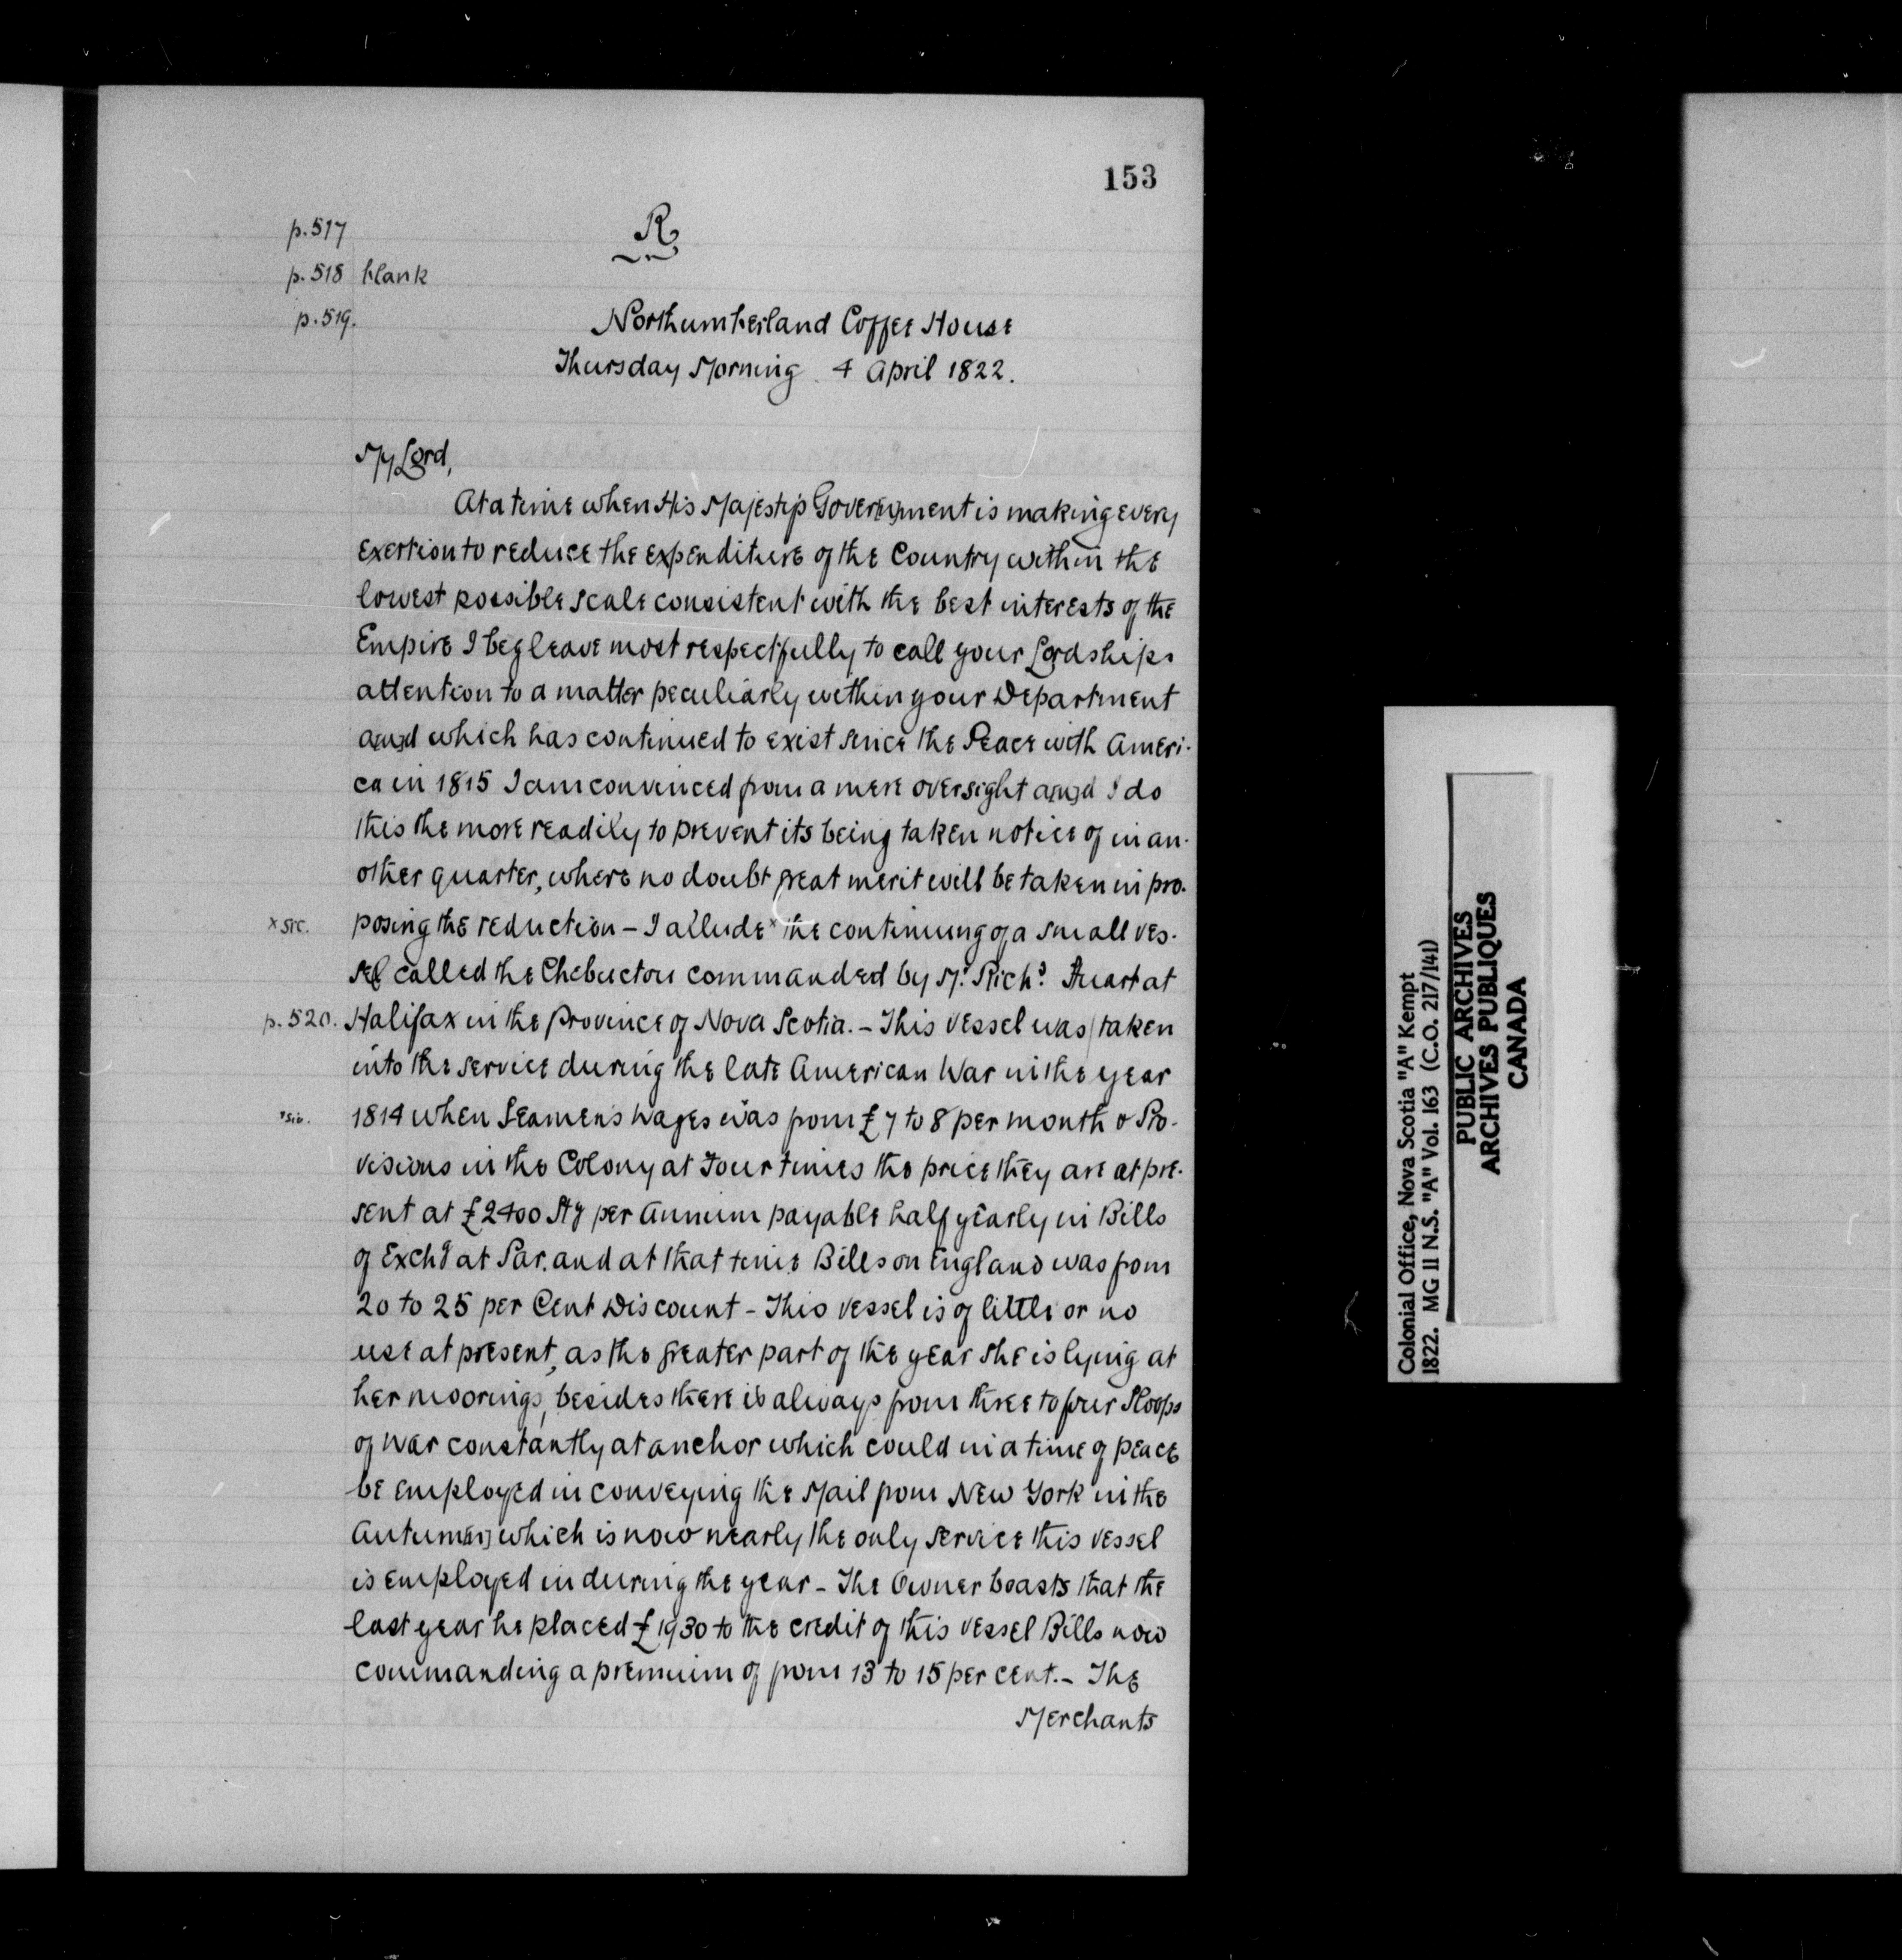 153
p. 517
R
p. 518 blank
p. 519.
Northumberland Coffee House
Thursday Morning 4 April 1822.
My Lord,
At a time when His Majesty's Gover[n]ment is making every
exertion to reduce the expenditure of the Country within the
lowest possible scale consistent with the best interests of the
Empire I beg leave most respectfully to call your Lordships
attention to a matter peculiarly within your Department
a[n]d which has continued to exist since the Peace with Ameri-
ca in 1815 I am convinced from a mere oversight a[n]d I do
this the more readily to prevent its being taken notice of in an-
other quarter, where no doubt great merit will be taken in pro-
x sic. posing the reduction – I allude x the continuing of a small ves-
sel called the Chebucton commanded by Mr. Richd. at
p. 520. Halifax in the Province of Nova Scotia. – This Vessel was / taken
into the service during the late American War in the year
x sic. 1814 when Seamen's wages was from £7 to 8 per month & Pro-
visions in the Colony at Four times the price they are at pre-
sent at £2400 Stg per Annum payable half yearly in Bills
of Exchg at Par. and at that time Bills on England was from
20 to 25 per Cent Discount – This vessel is of little or no
use at present, as the greater part of the year she is lying at
her moorings, besides there is always from three to four Sloops
of War constantly at anchor which could in a time of peace
be employed in conveying the Mail from New York in the
Autum[n] which is now nearly the only service this vessel
is employed in during the year – The Owner boasts that the
last year he placed £1930 to the credit of this vessel Bills now
commanding a premium of from 13 to 15 per cent. – The
Merchants
Colonial Office, Nova Scotia "A" Kempt
1822. MG 11 N.S. "A" Vol. 163 (C.O. 217/141)
PUBLIC ARCHIVES
ARCHIVES PUBLIQUES
CANADA